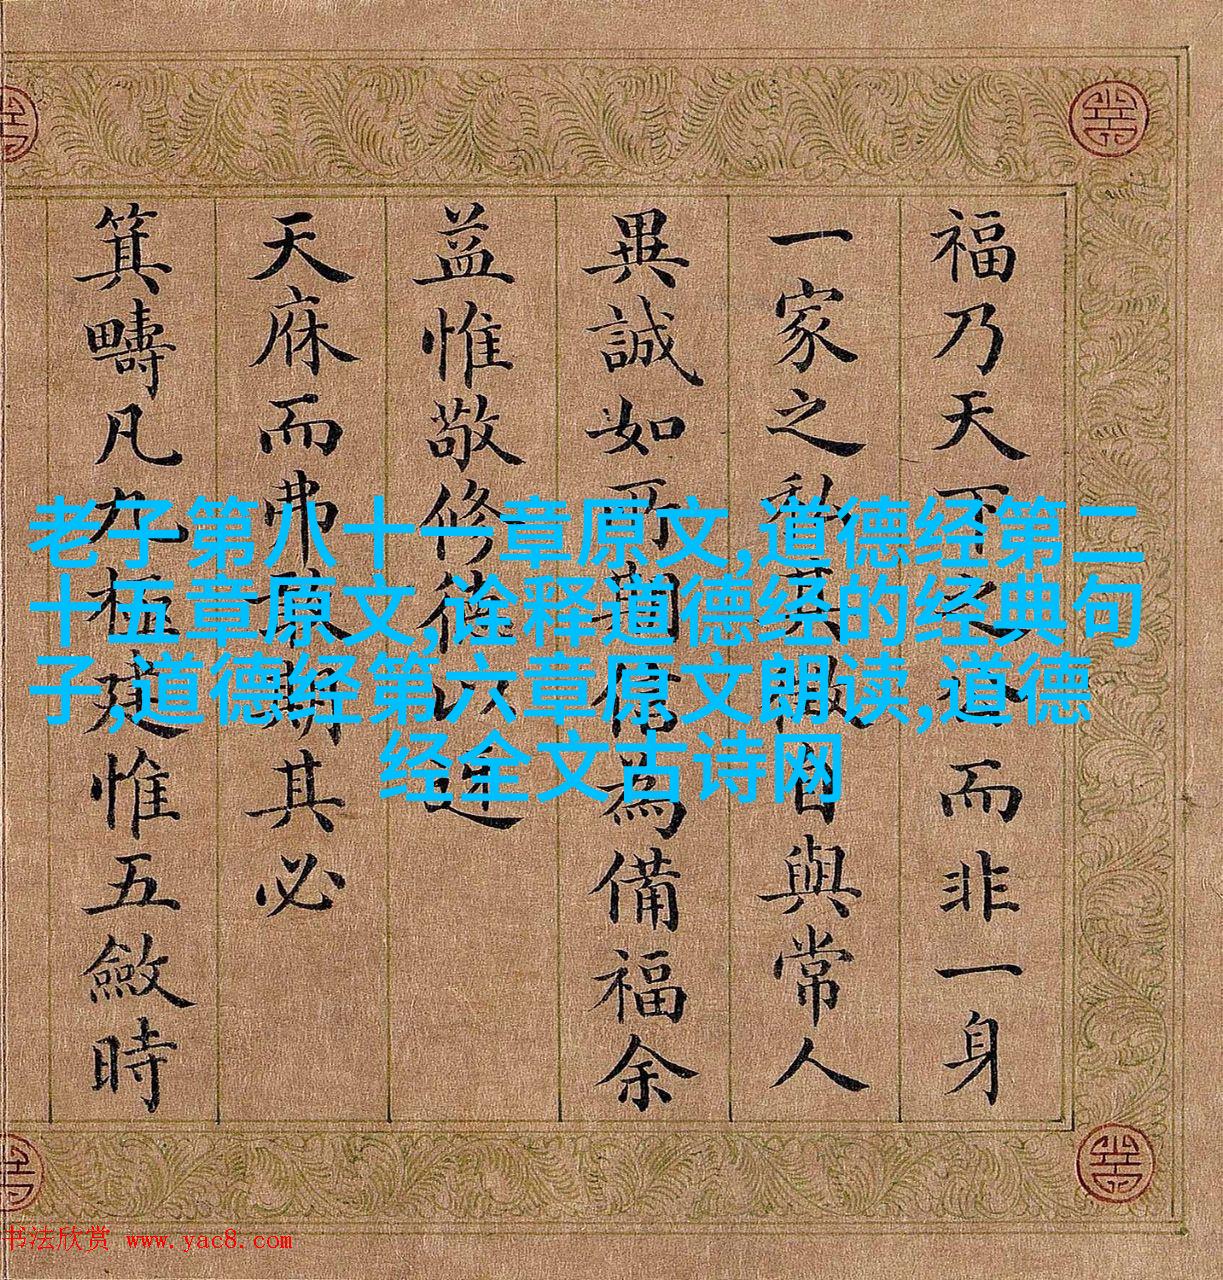 福乃天下之而非一身
一家之私其自與常人
異誠如所謂備為備福余
益惟敬修德以迓
天庥而弗敢期其必
箕疇凡九極建惟五斂時
老子第八十一章原文,道德经第二
十五章原文,诠释道德经的经典句
子,道德经第六章原文朗读,道德
经全文古诗网
书法欣赏 www.yac8.com